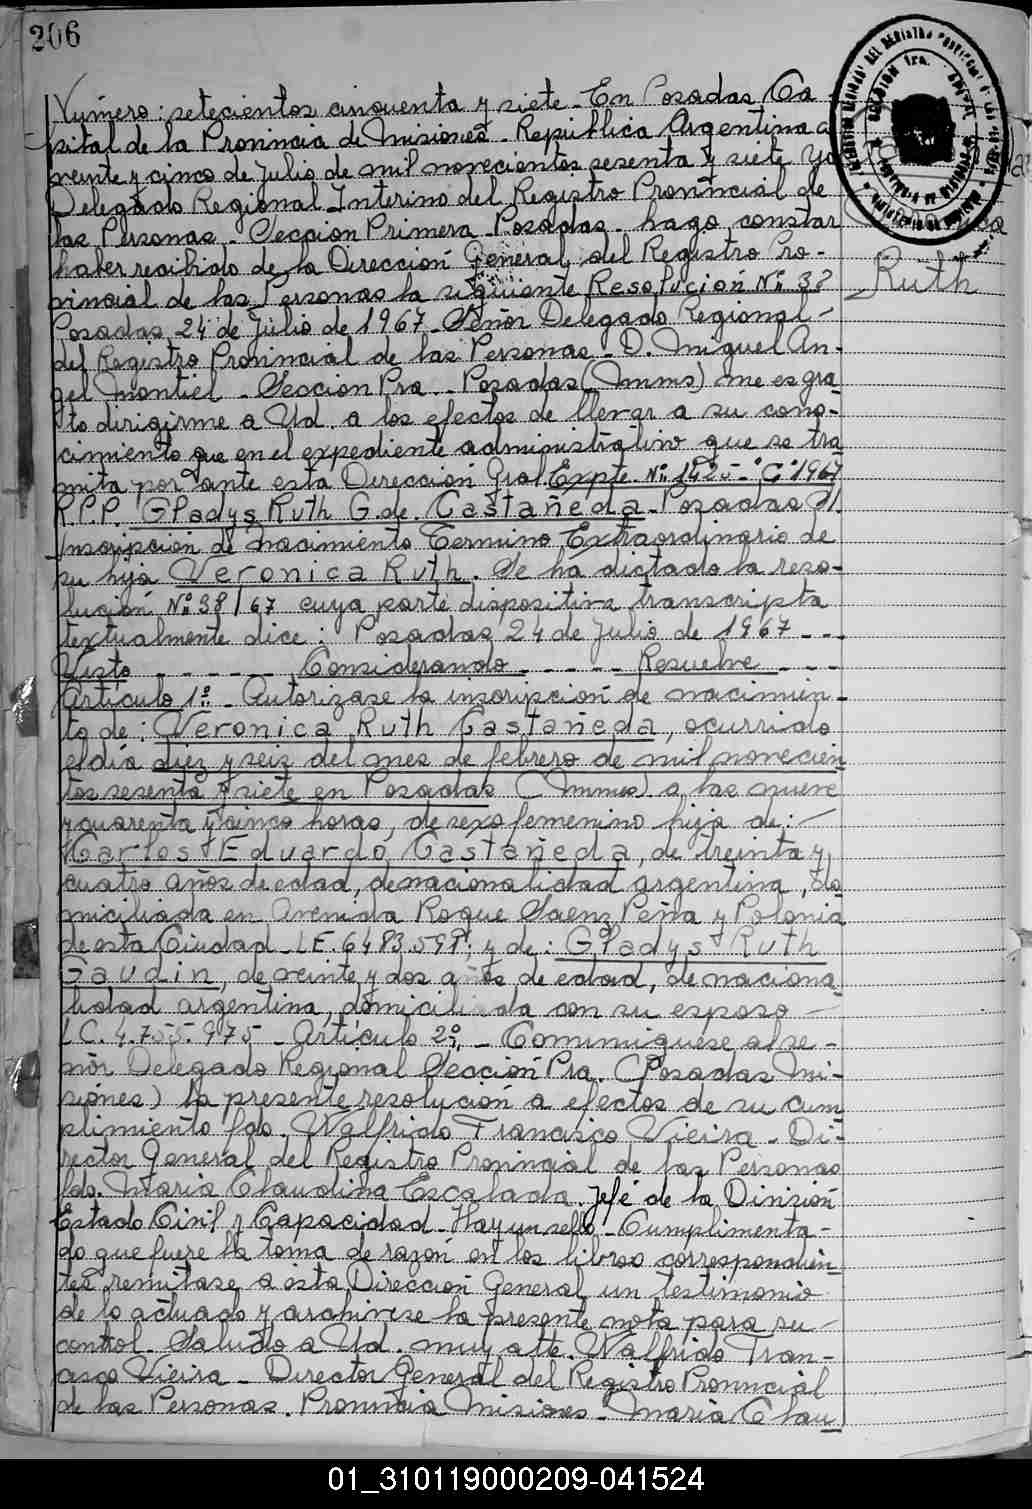 206
Número: setecientos cincuenta y siete - En Posadas Ca
pital de la Provincia de Misiones - Republica Argentina a
veinte y cinco de Julio de mil novecientos sesenta y siete Yo
Delegado Regional Interino del Registro Provincial de
las Personas - Seccion Primera - Posadas - hago constar
haber recibido de la Direccion General del Registro Pro-
vincial de las Personas la siguiente Resolución Nº 38
Posadas, 24 de Julio de 1967 - Señor Delegado Regional -
del Registro Provincial de las Personas - D. Miguel An-
gel Montiel - Seccion Pra. - Posadas (Mnes) me es gra
to dirigirme a Ud. a los efectos de llevar a su cono-
cimiento que en el expediente administrativo que se tra
mita por ante esta Dirección Gral. Expte. Nº 1425 - "G" 1967
R.P.P. Gladys Ruth G. de Castañeda - Posadas S/.
Inscripcion de Nacimiento Termino Extraordinario de
su hija Veronica Ruth. Se ha dictado la reso-
lución Nº 38/67 cuya parte dispositiva transcripta
textualmente dice: Posadas 24 de Julio de 1967 - - -
Visto - - - - - - Considerando - - - - - Resuelve - - -
Artículo 1º - Autorizase la inscripción de nacimien-
to de: Veronica Ruth Castañeda, ocurrido
el día diez y seis del mes de febrero de mil novecien
tos sesenta y siete en Posadas (Mnes) a las nueve
y cuarenta y cinco horas, de sexo femenino hija de: -
Carlos Eduardo Castañeda, de treinta y
cuatro años de edad, de nacionalidad argentina, do
miciliada en Avenida Roque Saenz Peña y Polonia
de esta Ciudad - L.E. 6483.598; y de: Gladys Ruth
Gaudin, de veinte y dos años de edad, de naciona
lidad argentina, domiciliada con su esposo -
L.C. 4.755.975 - Artículo 2º, - Comuniquese al se-
ñor Delegado Regional Sección Pra. (Posadas Mi-
siones) la presente resolución a efectos de su cum
plimiento fdo. Walfrido Francisco Vieira - Di-
rector General del Registro Provincial de las Personas
fdo. Maria Claudina Escalada. Jefe de la División
Estado Civil y Capacidad - Hay un sello - Cumplimenta-
do que fuere la toma de razón en los libros correspondien
tes, remitase a esta Direccion General un testimonio
de lo actuado y archivese la presente nota para su -
control. Saludo a Ud. muy atte. Walfrido Fran-
cisco Vieira - Director General del Registro Provincial
de las Personas. Provincia Misiones - Maria Clau
Ruth
01_310119000209-041524